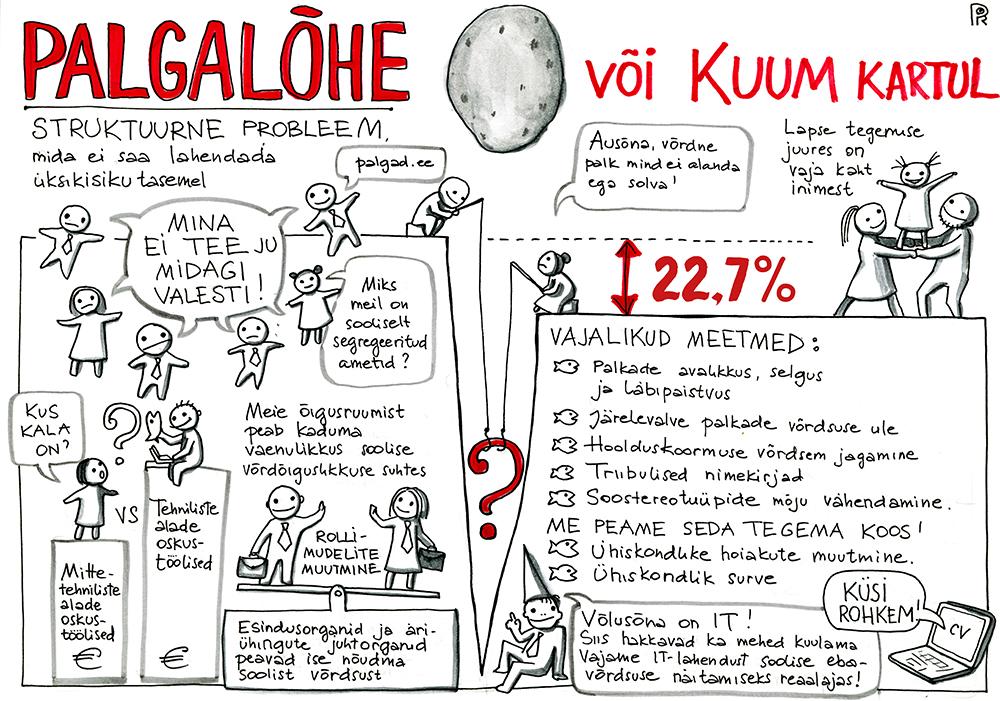 PALGALÕHE
VÕI KUUM KARTUL
PR
STRUKTUURNE PROBLEEM,
mida ei saa lahendada
üksikisiku tasemel
palgad.ee
MINA
EI TEE JU
MIDAGI
VALESTI!
Miks
meil on
sooliselt
segregeeritud
ametid?
KUS
KALA
ON?
?
VS
Mitte-
tehniliste
alade
oskus-
töölised
€
Tehniliste
alade
oskus-
töölised
€
Meie õigusruumist
peab kaduma
vaenulikkus soolise
võrdõiguslikkuse suhtes
ROLLI-
MUDELITE
MUUTMINE
Esindusorganid ja äri-
ühingute juhtorganid
peavad ise nõudma
soolist võrdsust
?
Ausõna, võrdne
palk mind ei alanda
ega solva!
Lapse tegemise
juures on
vaja kaht
inimest
22,7%
VAJALIKUD MEETMED:
Palkade avalikkus, selgus
ja läbipaistvus
Järelevalve palkade võrdsuse üle
Hoolduskoormuse võrdsem jagamine
Triibulised nimekirjad
Soostereotüüpide mõju vähendamine.
ME PEAME SEDA TEGEMA KOOS!
Ühiskondlike hoiakute muutmine.
Ühiskondlik surve
Võlusõna on IT!
Siis hakkavad ka mehed kuulama
Vajame IT-lahendust soolise eba-
võrdsuse näitamiseks reaalajas!
KÜSI
ROHKEM!
CV